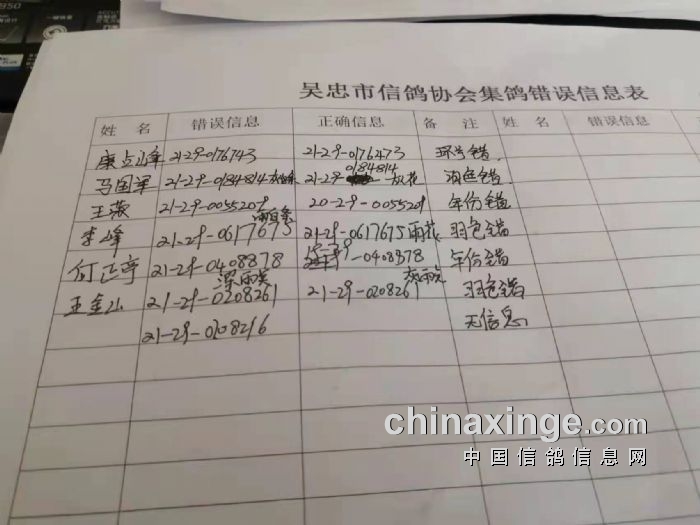 950
吴忠市信鸽协会集鸽错误信息表
姓 名 错误信息 正确信息 备 注 姓 名 错误信息
21-29-0176743 21-29-0176473 环号错.
马国军 21-29-0184814 21-29- 0184814 灰花 羽色错.
王荣 21-29-0055209 20-29-0055209 年份错
李峰 21-29-0617675 21-29-0617675 雨花 羽色错
何正亭 21-29-0408878 -0408878 年份错
王金山 21-29-0208261 21-29-0208261 羽色错
21-29-0208216 无信息.
chinaxinge.com
中国信鸽信息网